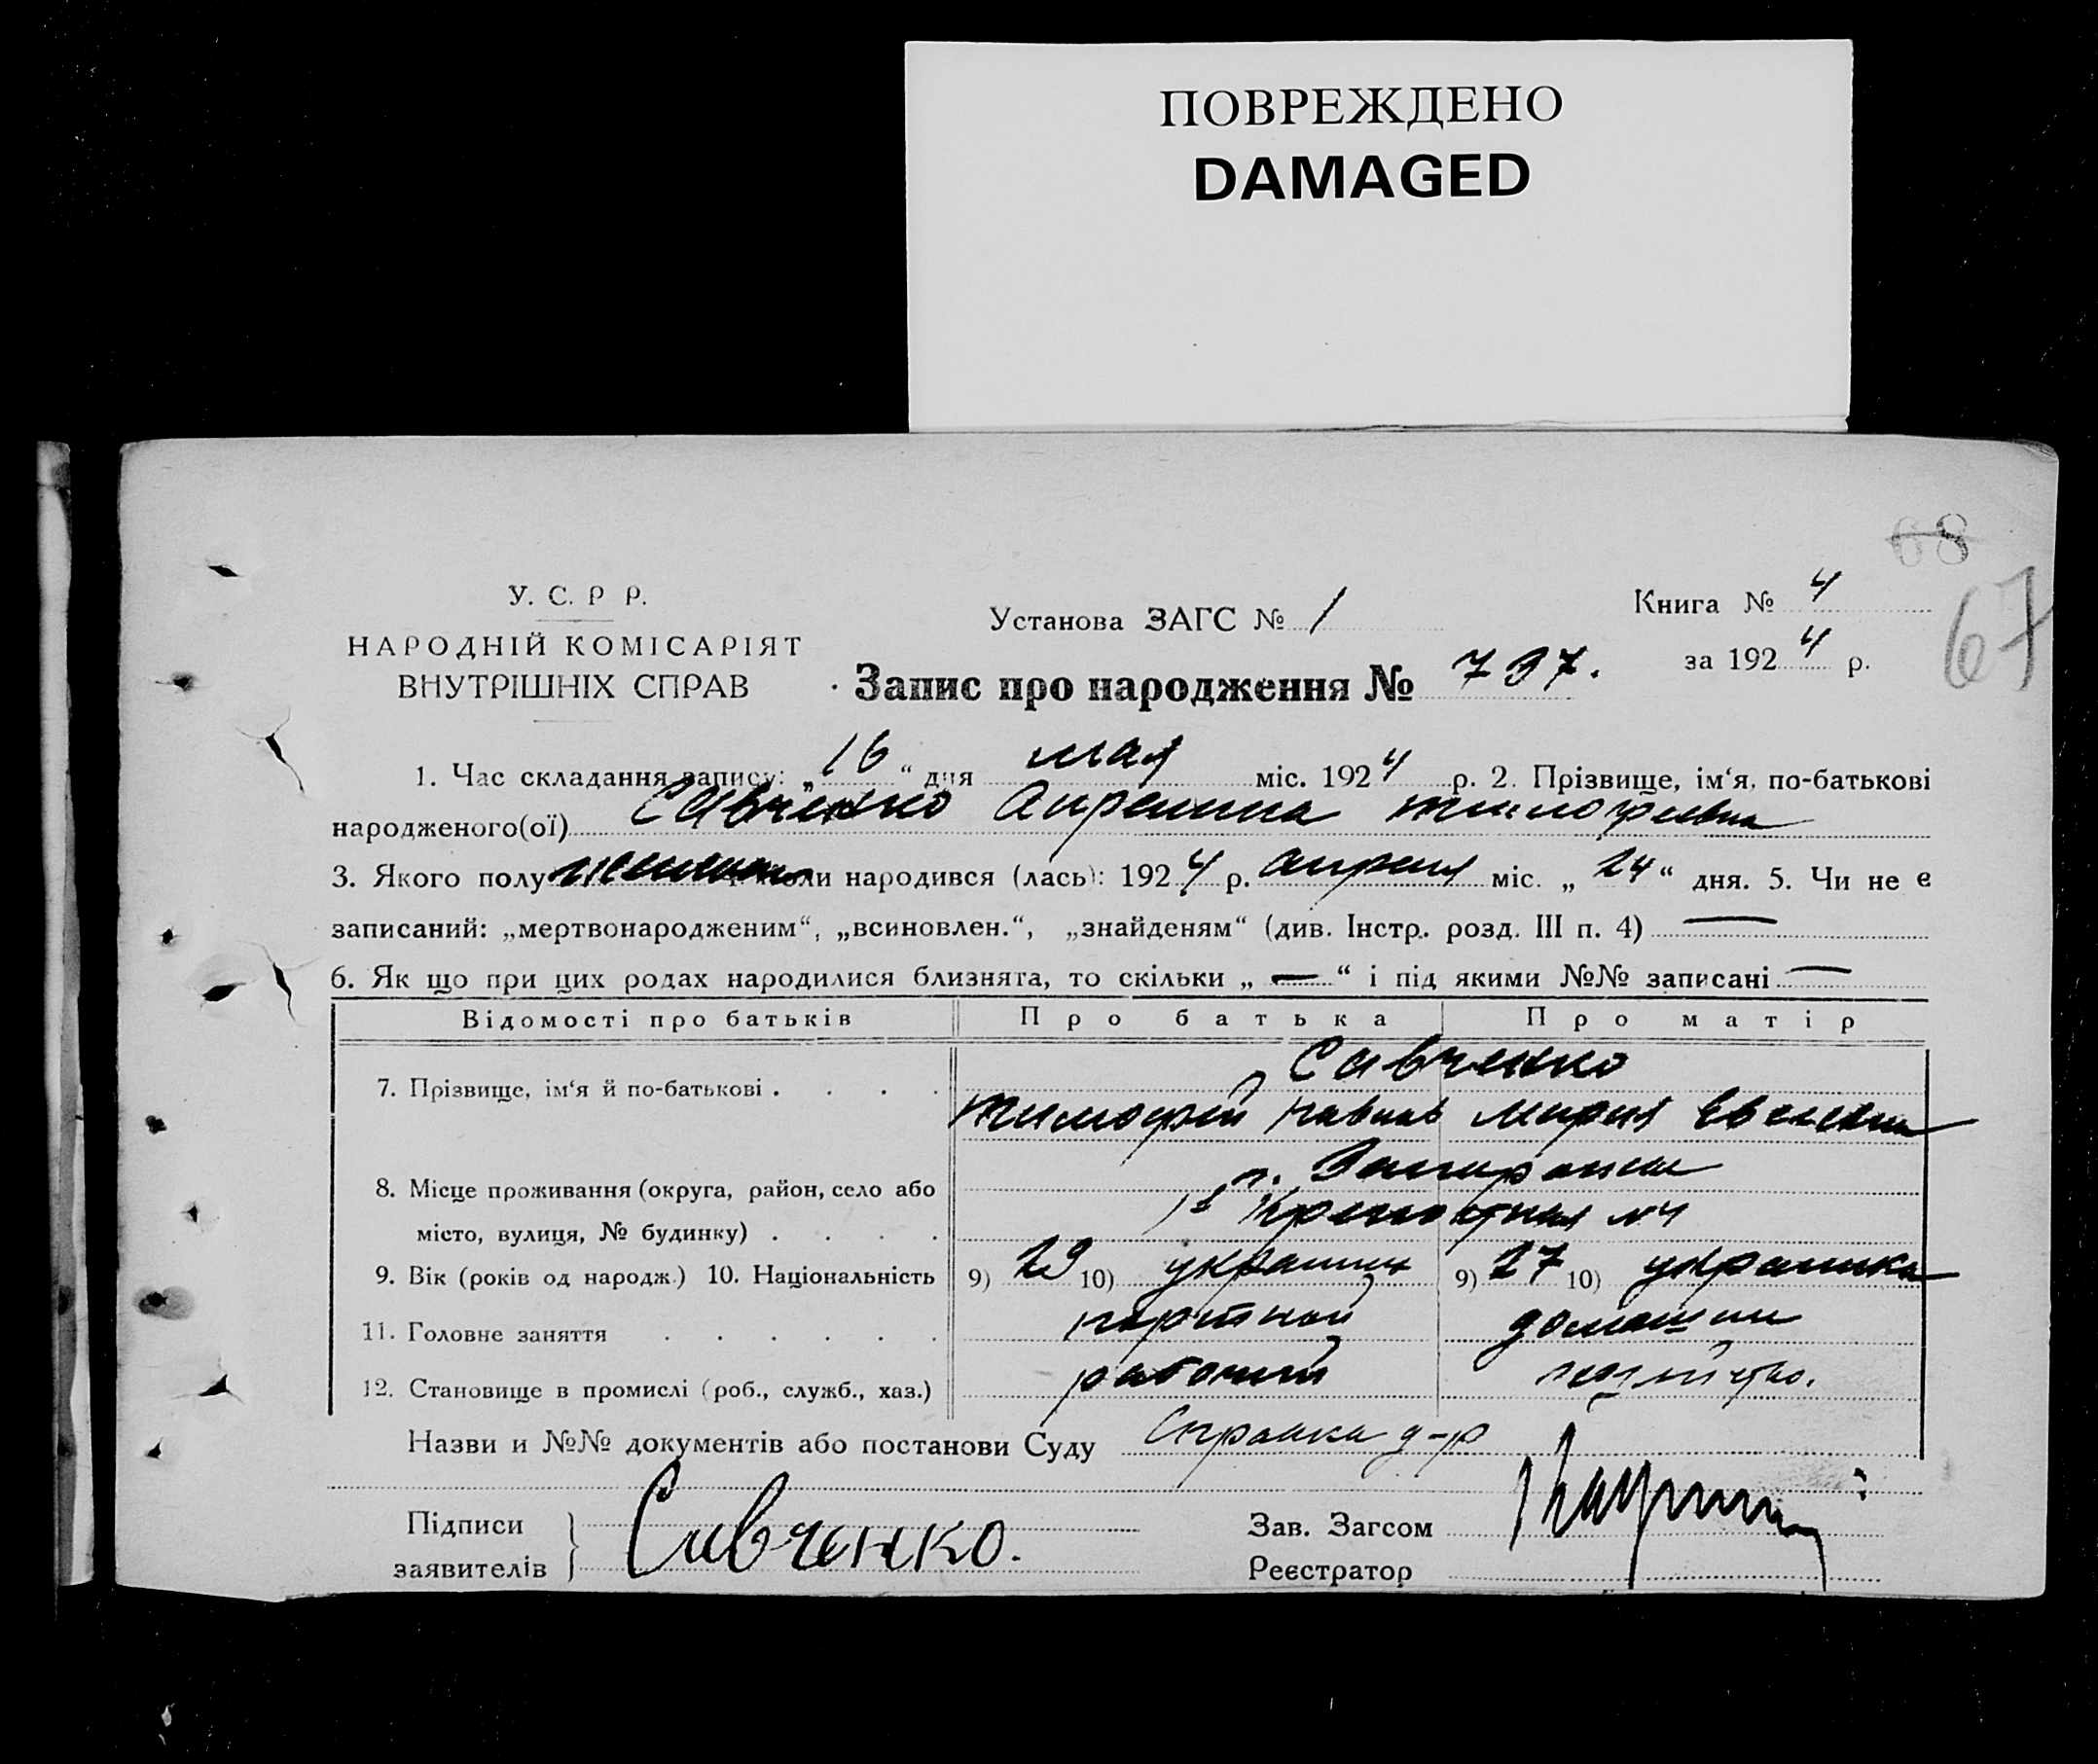 ПОВРЕЖДЕНО
DAMAGED
68
67
У. С. Р Р.
НАРОДНІЙ КОМІСАРІЯТ
ВНУТРІШНІХ СПРАВ
Установа ЗАГС № 1
Книга № 4
за 1924 р.
Запис про народження № 737.
1. Час складання запису: „16“ дня мая міс. 1924 р. 2. Прізвище, ім‘я, по-батькові
народженого(ої) Савченко тимофеевна
3. Якого полу коли народився (лась): 1924 р. апреля міс. „24“ дня. 5. Чи не є
записаний: „мертвонародженим“, „всиновлен.“, „знайденям“ (див. Інстр. розд. III п. 4) —
6. Як що при цих родах народилися близнята, то скільки „—“ і під якими №№ записані —
Відомості про батьків Про батька Про матір
7. Прізвище, ім‘я й по-батькові . . . . Савченко
тимофей павлов мария
8. Місце проживання (округа, район, село або
місто, вулиця, № будинку) . . . . №4
9. Вік (років од народж.) 10. Національність 9) 29 10) украинец 9) 27 10) украинка
11. Головне заняття . . . . . . портной домашнее
12. Становище в промислі (роб., служб., хаз.) рабочий
Назви и №№ документів або постанови Суду Справка д-р
Підписи
заявителів } Савченко.
Зав. Загсом
Реєстратор